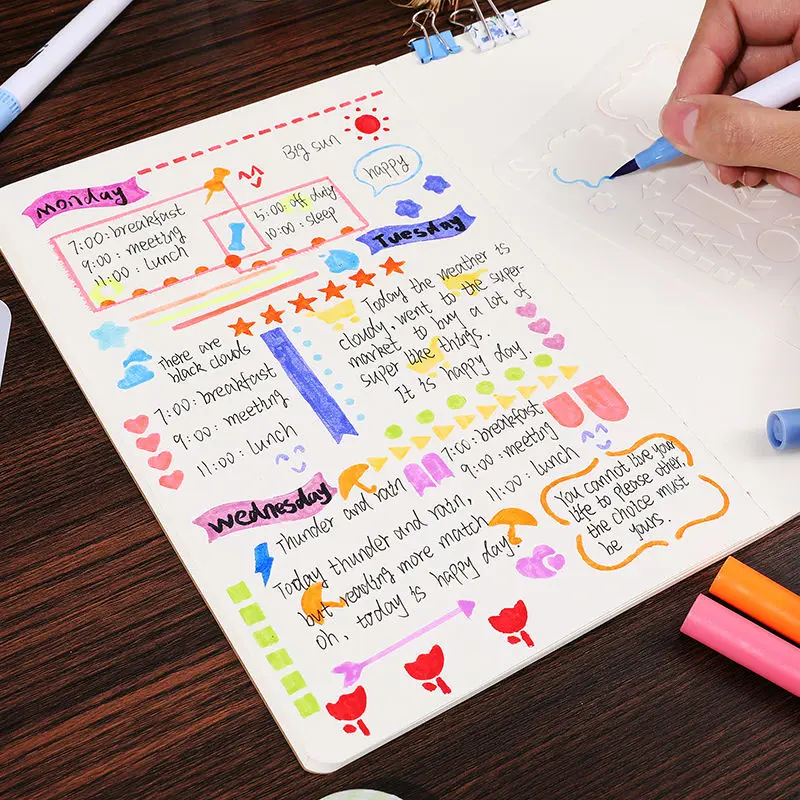 Big sun
happy
monday
7:00: breakfast
9:00: meeting
11:00: lunch
15:00: off duty
10:00: sleep
Tuesday
Today the weather is
cloudy, went to the super-
market to buy a lot of
super like things.
It is happy day.
There are
black clouds
7:00: breakfast
9:00: meeting
11:00: lunch
7:00: breakfast
9:00: meeting
11:00: lunch
wednesday
Thunder and rain
Today thunder and rain,
but reading more match
oh, today is happy day.
You cannot live your
life to please other,
the choice must
be yours.